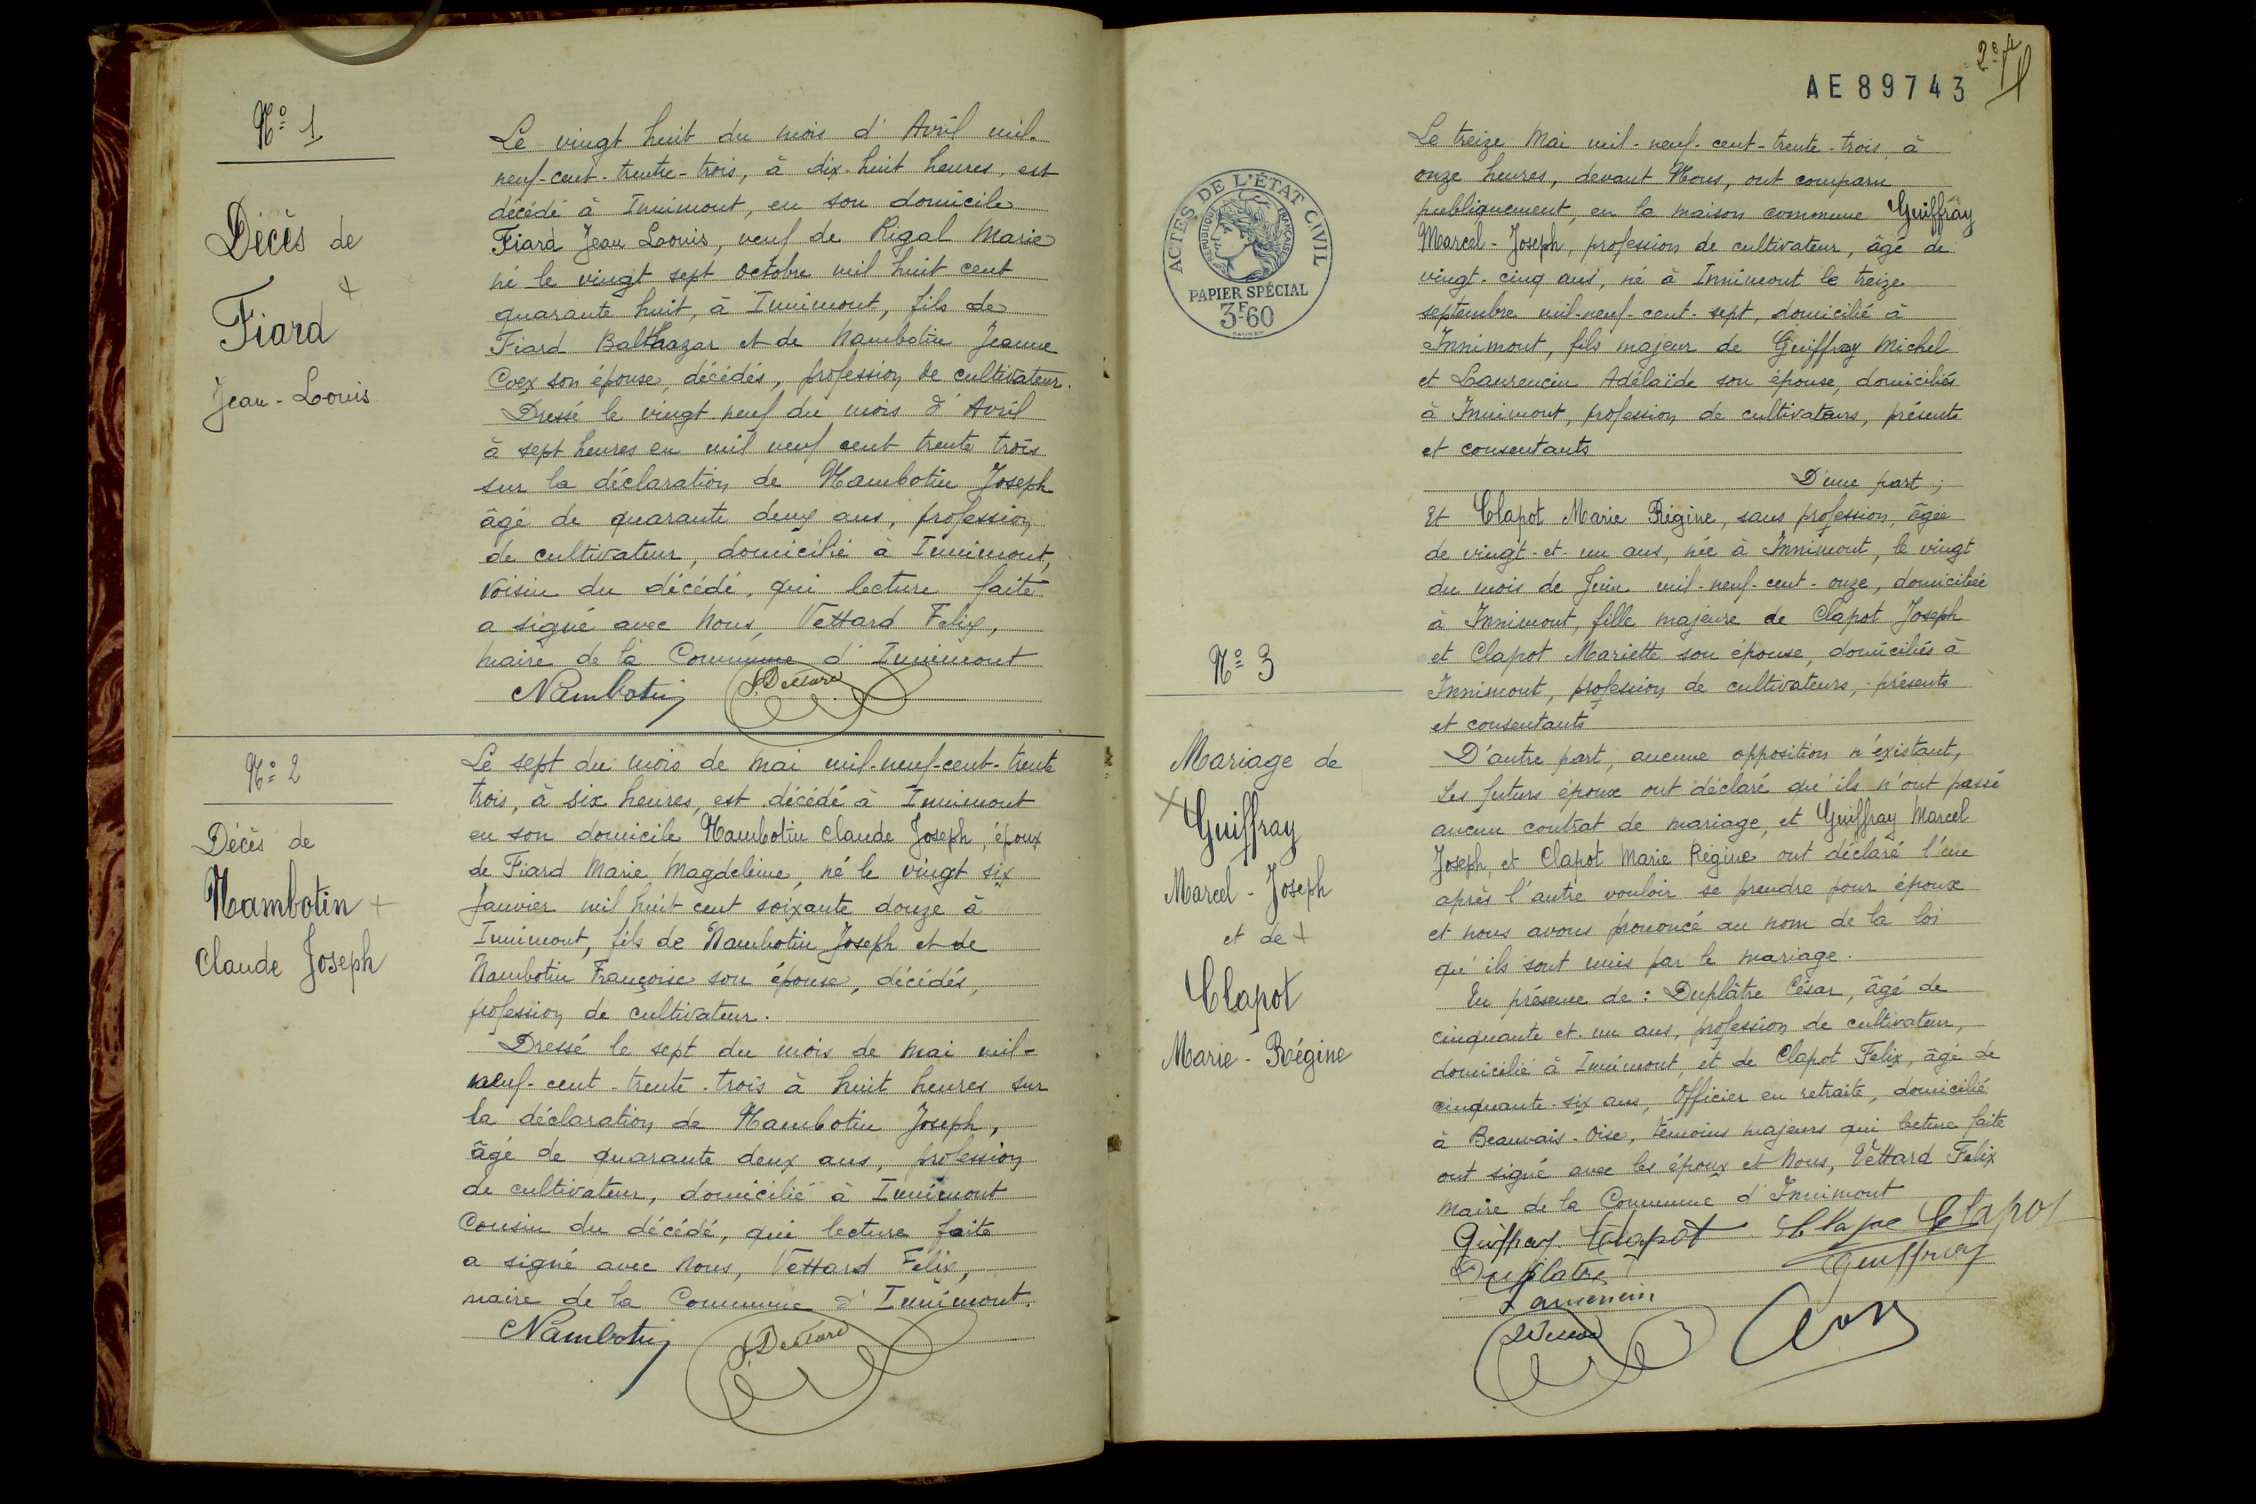 Nº 1
Décès de
Fiard
Jean-Louis
Le vingt huit du mois d'Avril mil-
neuf-cent-trente-trois, à dix-huit heures, est
décédé à Innimont, en son domicile
Fiard Jean Louis, veuf de Rigal Marie
né le vingt sept octobre mil huit cent
quarante huit, à Innimont, fils de
Fiard Balthazar et de Nambotin Jeanne
Coex son épouse, décédés, profession de cultivateur.
Dressé le vingt-neuf du mois d'Avril
à sept heures en mil neuf cent trente trois
sur la déclaration de Nambotin Joseph
âgé de quarante deux ans, profession
de cultivateur, domicilié à Innimont,
voisin du décédé, qui lecture faite
a signé avec Nous, Vettard Felix,
maire de la Commune d'Innimont
Nambotin
Nº 2
Décès de
Nambotin
Claude Joseph
Le sept du mois de mai mil-neuf-cent-trente
trois, à six heures, est décédé à Innimont
en son domicile Nambotin Claude Joseph, époux
de Fiard Marie Magdeleine, né le vingt six
Janvier mil huit cent soixante douze à
Innimont, fils de Nambotin Joseph et de
Nambotin Françoise son épouse, décédés,
profession de cultivateur.
Dressé le sept du mois de mai mil-
neuf-cent-trente-trois à huit heures sur
la déclaration de Nambotin Joseph,
âgé de quarante deux ans, profession
de cultivateur, domicilié à Innimont
Cousin du décédé, qui lecture faite
a signé avec Nous, Vettard Felix,
maire de la Commune d'Innimont.
Nambotin
AE 89743
ACTES DE L'ÉTAT CIVIL
RÉPUBLIQUE FRANÇAISE
PAPIER SPÉCIAL
3F60
Nº 3
Mariage de
Guiffray
Marcel-Joseph
et de
Clapot
Marie-Régine
Le treize Mai mil-neuf-cent-trente-trois, à
onze heures, devant Nous, ont comparu
publiquement, en la maison commune Guiffray
Marcel-Joseph, profession de cultivateur, âgé de
vingt-cinq ans, né à Innimont le treize
septembre mil-neuf-cent-sept, domicilié à
Innimont, fils majeur de Guiffray Michel
et Laurencin Adélaïde son épouse, domiciliés
à Innimont, profession de cultivateurs, présents
et consentants
D'une part;
Et Clapot Marie Régine, sans profession, âgée
de vingt-et-un ans, née à Innimont, le vingt
du mois de Juin mil-neuf-cent-onze, domiciliée
à Innimont, fille majeure de Clapot Joseph
et Clapot Mariette son épouse, domiciliés à
Innimont, profession de cultivateurs, présents
et consentants
D'autre part, aucune opposition n'existant,
Les futurs époux ont déclaré qu'ils n'ont passé
aucun contrat de mariage, et Guiffray Marcel
Joseph, et Clapot Marie Régine ont déclaré l'un
après l'autre vouloir se prendre pour époux
et nous avons prononcé au nom de la loi
qu'ils sont unis par le mariage.
En présence de : Duplâtre César, âgé de
cinquante et un ans, profession de cultivateur,
domicilié à Innimont, et de Clapot Felix, âgé de
cinquante-six ans, Officier en retraite, domicilié
à Beauvais-Oise, témoins majeurs qui lecture faite
ont signé avec les époux et Nous, Vettard Felix
maire de la Commune d'Innimont
Guiffray Clapot Clapot
Duplatre Guiffray
Laurencin